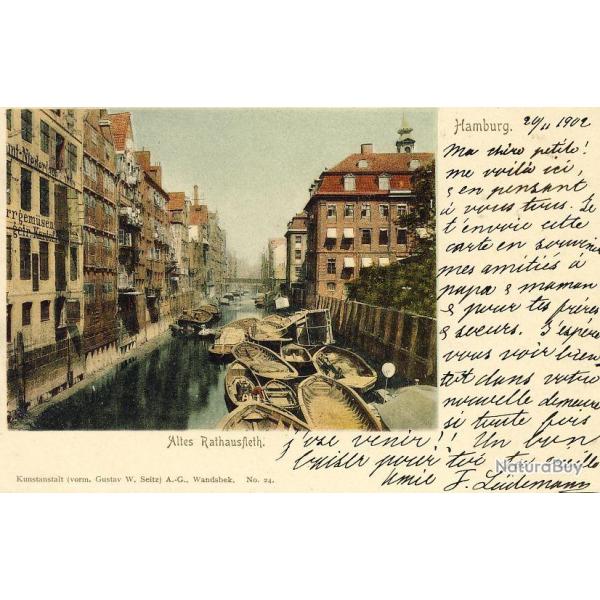 Hamburg. 20/11 1902
Ma chère petite!
me voilà ici,
& en pensant
à vous tous. Je
t'envoie cette
carte en souvenir
mes amitiés à
papa & maman
& pour tes frères
& soeurs. J'espère
vous voir bien
tôt dans votre
nouvelle demeure
si toute fois
j'ose venir!! Un bon
baiser pour toi ta vieille
amie F. Lüdemann
nt-Niederla
rrgemüsen
Altes Rathausfleth.
Kunstanstalt (vorm. Gustav W. Seitz) A.-G., Wandsbek. No. 24.
NaturaBuy